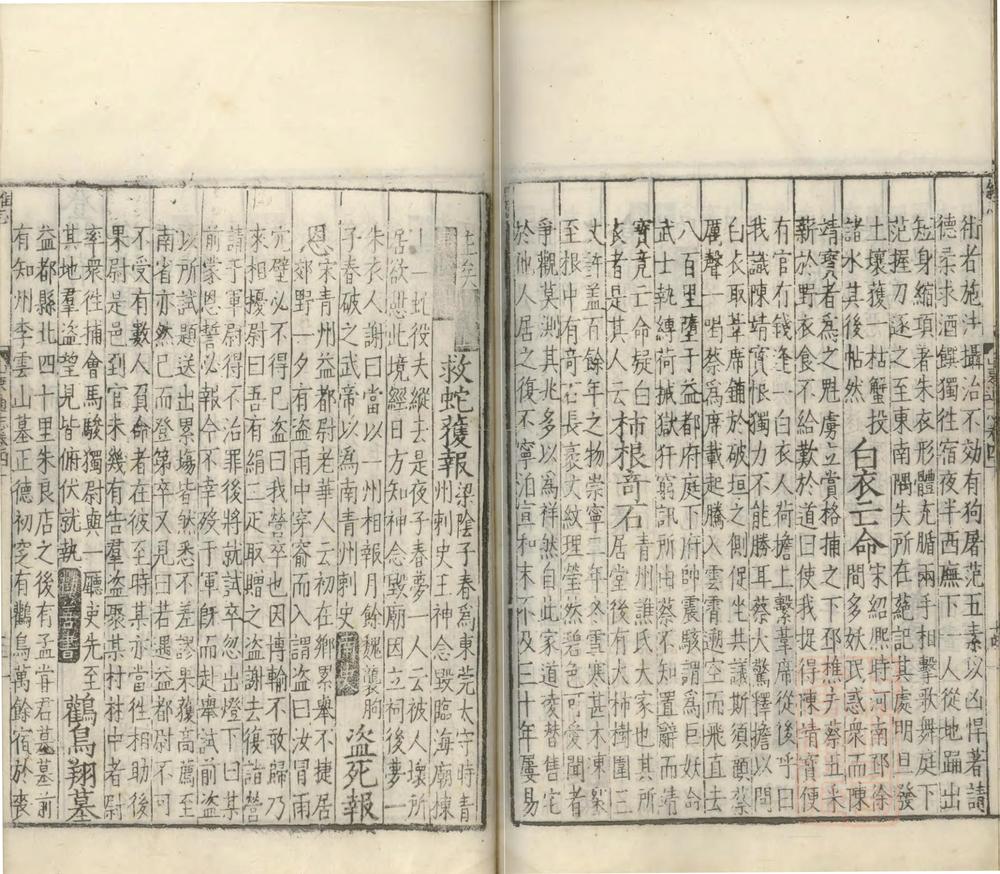 術者施法攝治不効有狗屠范五素以凶悍著請
德柔求酒饌獨徃宿夜半西廡下一人從地踊出
短身縮項者朱衣形體充腯兩手相擊歌舞庭下
范握刀逐之至東南隅失所在蕝記其處明旦發
土壤獲一枯蟹投
諸水其後帖然　白衣亡命　宋紹熈時河南邳徐
間多妖民惑衆而陳
靖寶者爲之魁虜立賞格捕之下邳樵夫蔡五采
薪於野衣食不給歎於道曰使我捉得陳靖寶便
有官有錢逢一白衣人荷擔上繫葦席從後呼曰
我識陳靖寳恨獨力不能勝耳蔡大驚釋擔以問
白衣取葦席鋪於破垣之側促坐共議斯須顧蔡
厲聲一喝蔡爲席載起騰入雲霄遡空而飛直去
八百里墮于益都府庭下府帥震駭謂爲巨妖命
武士執縛荷械獄犴窮訊所由蔡不知置辭而靖
寳竟亡命疑白
衣者是其人云　柿根奇石　青州譙氏大家也其所
居堂後有大柿樹圍三
丈許蓋百餘年之物崇寧二年冬雪寒甚木凍
至根中有奇石長
爭觀莫測其兆多以爲祥然自此家道凌替售宅
於他人居之復不寧泊宣和末不及三十年屢易
主矣
救蛇獲報　梁陰子春爲東莞太守時青
州刺史王神念毀臨海廟棟
上一蛇役夫縱去是夜子春夢一人云被人壞所
居欲憇此境經日方知神念毀廟因立祠後夢一
朱衣人謝曰當以一州相報月餘魏襲朐
子春破之武帝以爲南青州刺史　盗死報
恩　宋青州益都尉老華人云初在鄉累舉不捷居
郊野一夕有盗穿窬而入謂盗曰汝冒雨
穴壁必不得巳盗曰我營卒也因博輸不敢歸乃
來相擾尉曰吾有絹二疋取贈之盗謝去復詣營
請于軍尉得不治罪後將就試卒忽出燈下曰某
前蒙恩誓必報今不幸殁于軍旣而赴舉試前盗
以所試題送出累塲皆然悉不差謬果獲高薦至
南省亦然已而登第卒又見曰若遇益都尉不可
不受有數人負命者在彼至時其亦當徃相助後
果尉是邑到官未幾有告羣盗聚某村林中者尉
率衆徃捕會馬駿獨尉與一廳吏先至
其地羣盗望見皆俯伏就執　鸛鳥翔墓
益都縣北四十里朱良店之後有孟甞君墓墓前
有知州李雲山墓正德初突有鸛鳥萬餘宿於喪